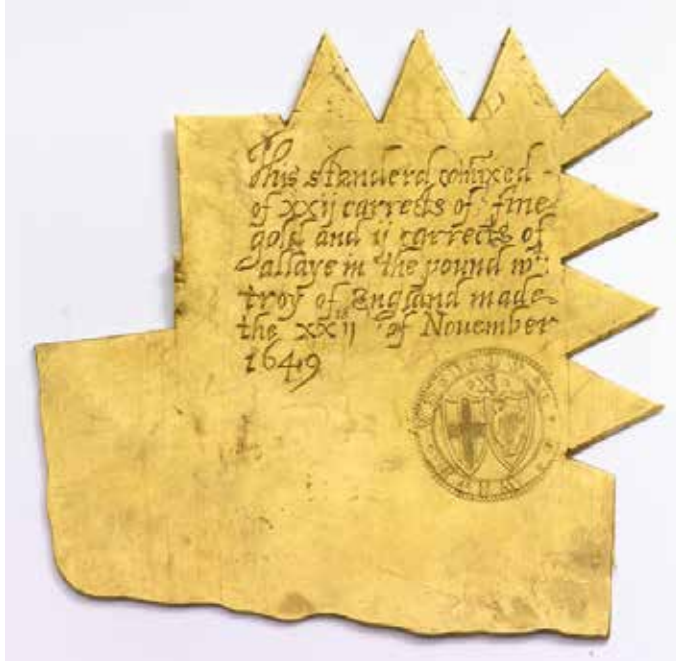 This standerd comixed
of xxij carrects of fine
gold and ij carrects of
allaye in the pound wt
troy of England made
the xxijth of Nouember
1649